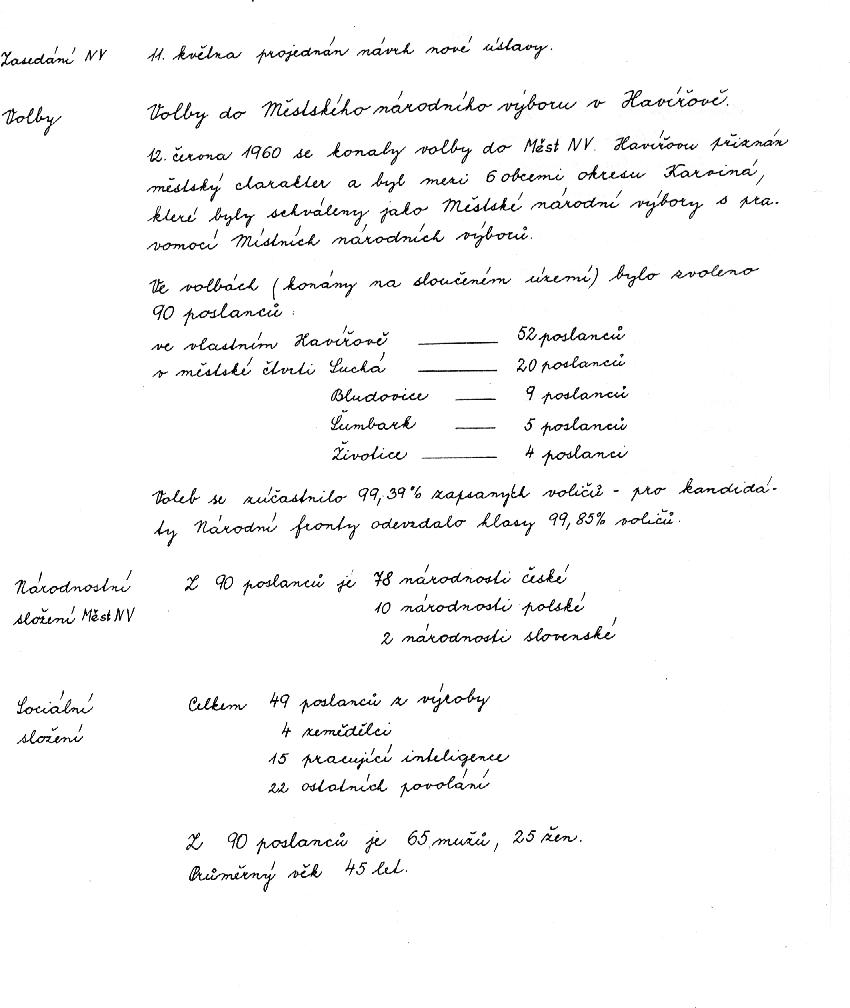 Zasedání NV 11. května projednán návrh nové ústavy.
Volby Volby do Městského národního výboru v Havířově.
12. června 1960 se konaly volby do Měst NV. Havířovu přiznán
městský charakter a byl mezi 6 obcemi okresu Karviná,
které byly schváleny jako Městské národní výbory s pra-
vomocí Místních národních výborů.
Ve volbách (konány na sloučeném území) bylo zvoleno
90 poslanců:
ve vlastním Havířově 52 poslanců
v městské čtvrti Suchá 20 poslanců
Bludovice 9 poslanců
Šumbark 5 poslanců
Životice 4 poslanci
Voleb se zúčastnilo 99,39% zapsaných voličů - pro kandidá-
ty Národní fronty odevzdalo hlasy 99,85% voličů.
Národnostní Z 90 poslanců je 78 národnosti české
složení Měst NV 10 národnosti polské
2 národnosti slovenské
Sociální Celkem 49 poslanců z výroby
složení 4 zemědělci
15 pracující inteligence
22 ostatních povolání
Z 90 poslanců je 65 mužů, 25 žen.
Průměrný věk 45 let.